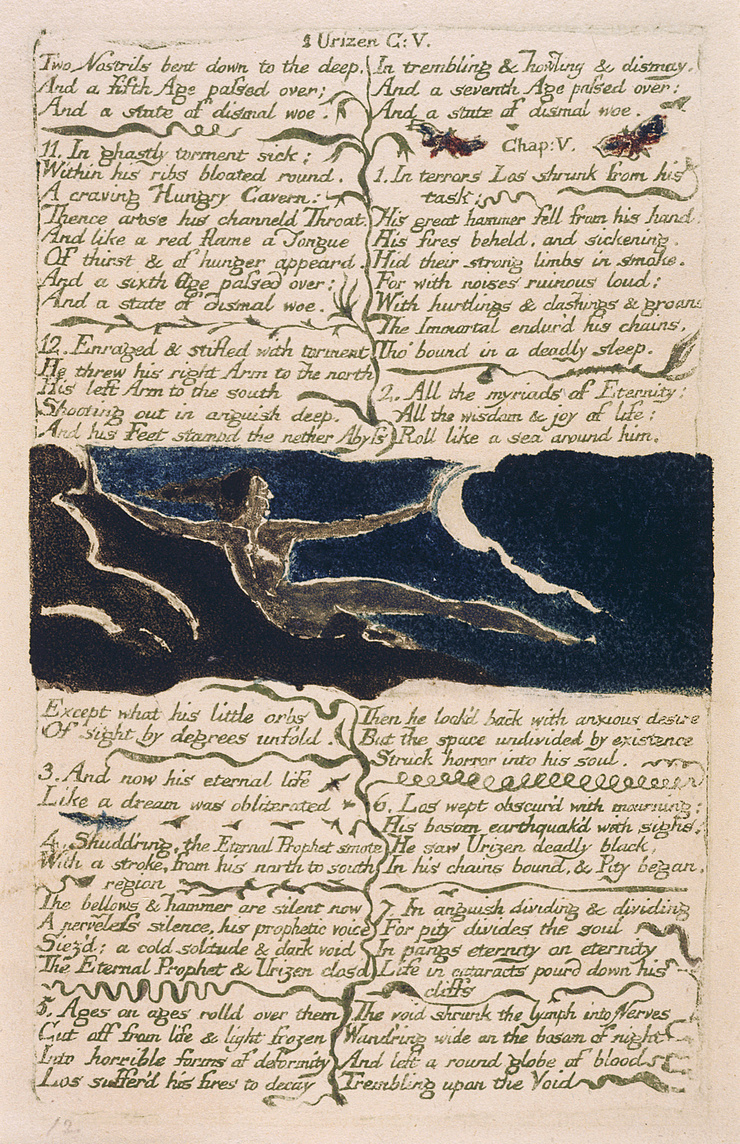 1 Urizen C: V.
Two Nostrils bent down to the deep.
And a fifth Age passed over;
And a state of dismal woe.
11. In ghastly torment sick;
Within his ribs bloated round.
A craving Hungry Cavern:
Thence arose his channeld Throat,
And like a red flame a Tongue
Of thirst & of hunger appeard.
And a sixth Age passed over:
And a state of dismal woe.
12. Enraged & stifled with torment
He threw his right Arm to the north
His left Arm to the south
Shooting out in anguish deep.
And his Feet stampd the nether Abyss
In trembling & howling & dismay.
And a seventh Age passed over:
And a state of dismal woe.
Chap: V.
1. In terrors Los shrunk from his
task:
His great hammer fell from his hand:
His fires beheld, and sickening.
Hid their strong limbs in smoke.
For with noises ruinous loud;
With hurtlings & clashings & groans
The Immortal endur'd his chains,
Tho' bound in a deadly sleep.
2. All the myriads of Eternity:
All the wisdom & joy of life:
Roll like a sea around him.
Except what his little orbs
Of sight by degrees unfold.
3. And now his eternal life
Like a dream was obliterated
4. Shudd'ring, the Eternal Prophet smote
With a stroke, from his north to south
region
The bellows & hammer are silent now
A nerveless silence, his prophetic voice
Siez'd; a cold solitude & dark void
The Eternal Prophet & Urizen clos'd
5. Ages on ages rolld over them
Cut off from life & light frozen
Into horrible forms of deformity
Los suffer'd his fires to decay
Then he look'd back with anxious desire
But the space undivided by existence
Struck horror into his soul.
6. Los wept obscur'd with mourning:
His bosom earthquak'd with sighs;
He saw Urizen deadly black,
In his chains bound, & Pity began,
7. In anguish dividing & dividing
For pity divides the soul
In pangs eternity on eternity
Life in cataracts pourd down his
cliffs
The void shrunk the lymph into Nerves
Wand'ring wide on the bosom of night
And left a round globe of blood
Trembling upon the Void
12